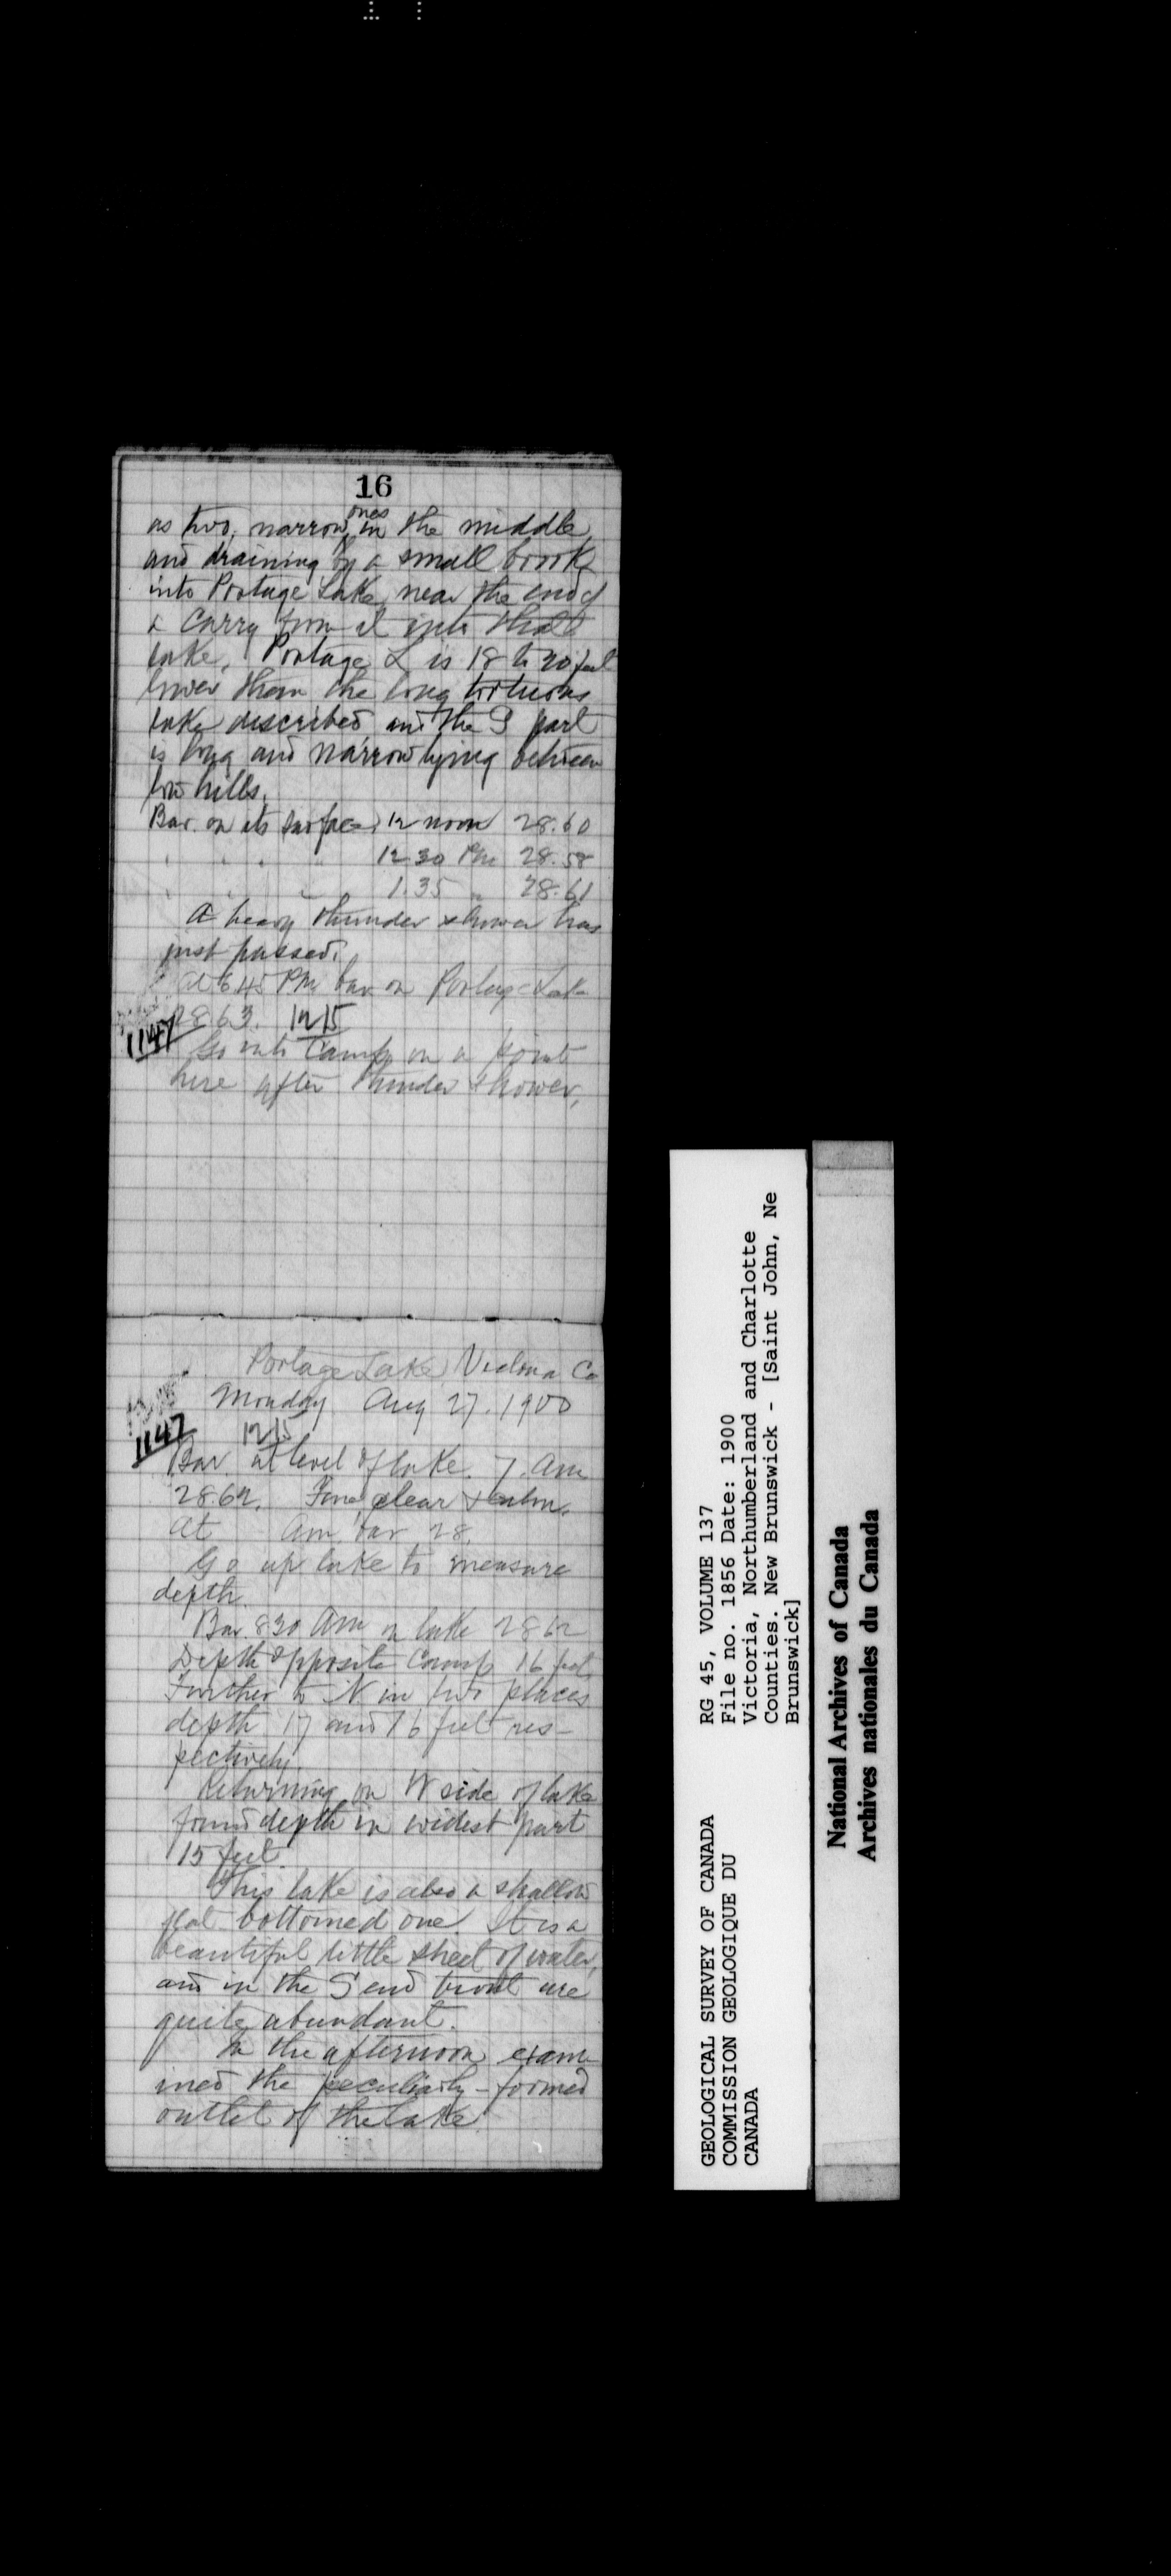 16
as two narrow ones in the middle
and draining by a small brook
into Portage Lake near the end of
a carry from it into that
lake. Portage L is 18 to 20 feet
lower than the long tortuous
lake described and the S part
is long and narrow lying between
low hills.
Bar. on its surface, 12 noon 28.60
" " " " 12 30 Pm 28.58
" " " 1.35 " 28.61
A heavy thunder shower has
just passed.
At 6 45 Pm bar on Portage Lake
28.63. 1215
1147
Go into Camp on a point
here after thunder shower,
Portage Lake, Victoria Co
Monday Aug 27. 1900
1215
1147
Bar at level of lake. 7. am
28.62. Fine, clear & calm.
At am bar 28.
Go up lake to measure
depth.
Bar. 830 am on lake 28 62
Depth opposite Camp 16 feet
Further to N in two places
depth 17 and 16 feet res-
pectively.
Returning on W side of lake
found depth in widest part
15 feet.
This lake is also a shallow
flat bottomed one. It is a
beautiful little sheet of water,
and in the S end trout are
quite abundant.
In the afternoon exam-
ined the peculiarly-formed
outlet of the lake.
GEOLOGICAL SURVEY OF CANADA
COMMISSION GEOLOGIQUE DU
CANADA
RG 45, VOLUME 137
File no. 1856 Date: 1900
Victoria, Northumberland and Charlotte
Counties. New Brunswick - [Saint John, Ne
Brunswick]
National Archives of Canada
Archives nationales du Canada